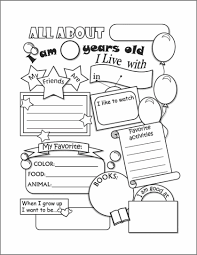 ALL ABOUT
I am years old
I Live with
My
Friends
Are
in
I like to watch
Favorite
activities
My Favorite:
COLOR:
FOOD:
ANIMAL:
BOOKS:
When I grow up
I want to be...
I am good at